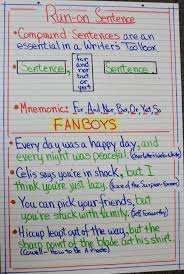 Run-on Sentence
• Compound Sentences are an
essential in a Writer's Toolbox
• Sentence, for and nor but or yet so Sentence.
• Mnemonic: For, And, Nor, But, Or, Yet, So
FANBOYS
• Every day was a happy day, and
every night was peaceful. (Charlotte's Web - White)
• Celis says you're in shock, but I
think you're just lazy. (
• You can pick your friends, but
you're stuck with family. (
• Hiccup leapt out of the way, but the
sharp point of the blade cut his shirt.
(Cowell - How to Be A Pirate)